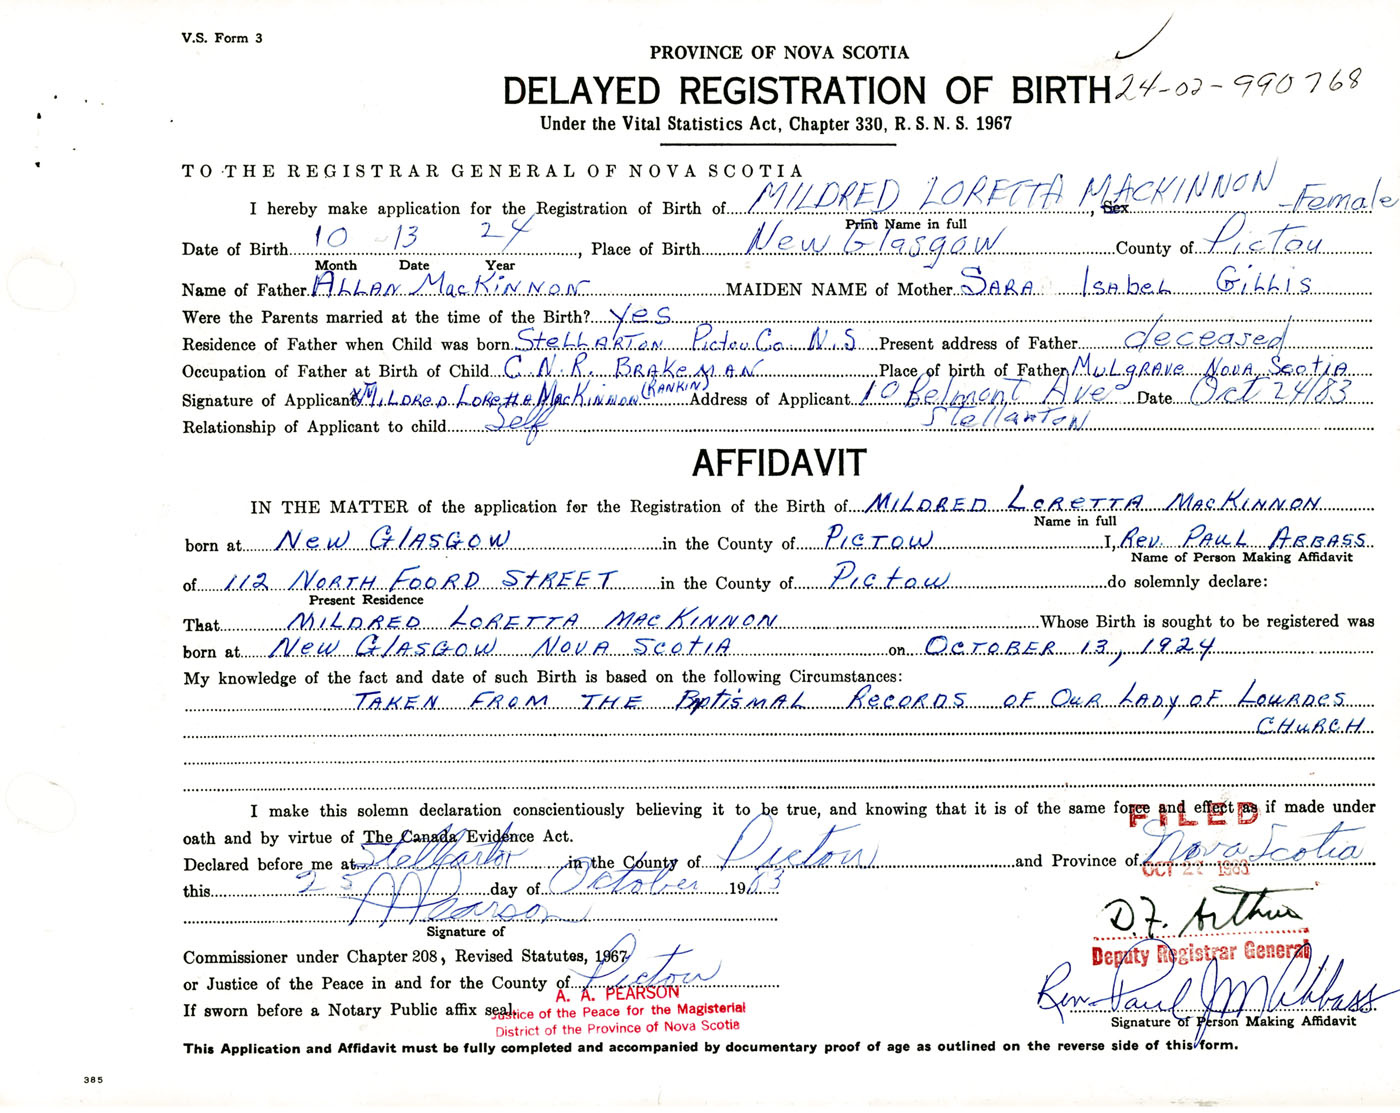 V.S. Form 3
PROVINCE OF NOVA SCOTIA
DELAYED REGISTRATION OF BIRTH 24-02-990768
Under the Vital Statistics Act, Chapter 330, R.S.N.S. 1967
TO THE REGISTRAR GENERAL OF NOVA SCOTIA
I hereby make application for the Registration of Birth of MILDRED LORETTA MACKINNON, Sex - Female
Print Name in full
Date of Birth 10 - 13 24, Place of Birth New Glasgow County of Pictou
Month Date Year
Name of Father ALLAN MacKINNON MAIDEN NAME of Mother SARA ISAbEL GILLIS
Were the Parents married at the time of the Birth? yes
Residence of Father when Child was born StELLARTON Pictou Co N.S Present address of Father deceased
Occupation of Father at Birth of Child C.N.R. BRAKEMAN Place of birth of Father MuLgRAVE Nova Scotia
Signature of Applicant X MILDRED LORETTA MacKINNON (RANKIN) Address of Applicant 10 Belmont Ave Date Oct 24/83
Relationship of Applicant to child Self Stellarton
AFFIDAVIT
IN THE MATTER of the application for the Registration of the Birth of MILDRED LORETTA MacKINNON
Name in full
born at New GLASGOW in the County of PICTOW I, Rev. PAUL ABBASS
Name of Person Making Affidavit
of 112 NORTH FOORD STREET in the County of Pictow do solemnly declare:
Present Residence
That MILDRED LORETTA MACKINNON Whose Birth is sought to be registered was
born at New GLASGOW NOVA SCOTIA on OCTOBER 13, 1924
My knowledge of the fact and date of such Birth is based on the following Circumstances:
TAKEN FROM THE BptismAL RECORDS OF OUR LADY OF LOURDES
CHURCH
I make this solemn declaration conscientiously believing it to be true, and knowing that it is of the same force and effect as if made under
FILED
oath and by virtue of The Canada Evidence Act.
Declared before me at Stellarton in the County of Pictou and Province of Nova Scotia
OCT 1983
this 25 day of October 1983
A A Pearson
D.F. Arthur
Signature of
Deputy Registrar General
Commissioner under Chapter 208, Revised Statutes, 1967
or Justice of the Peace in and for the County of Pictou
A. A. PEARSON
Rev. Paul J M Abbass
If sworn before a Notary Public affix seal.
Justice of the Peace for the Magisterial
District of the Province of Nova Scotia
Signature of Person Making Affidavit
This Application and Affidavit must be fully completed and accompanied by documentary proof of age as outlined on the reverse side of this form.
385